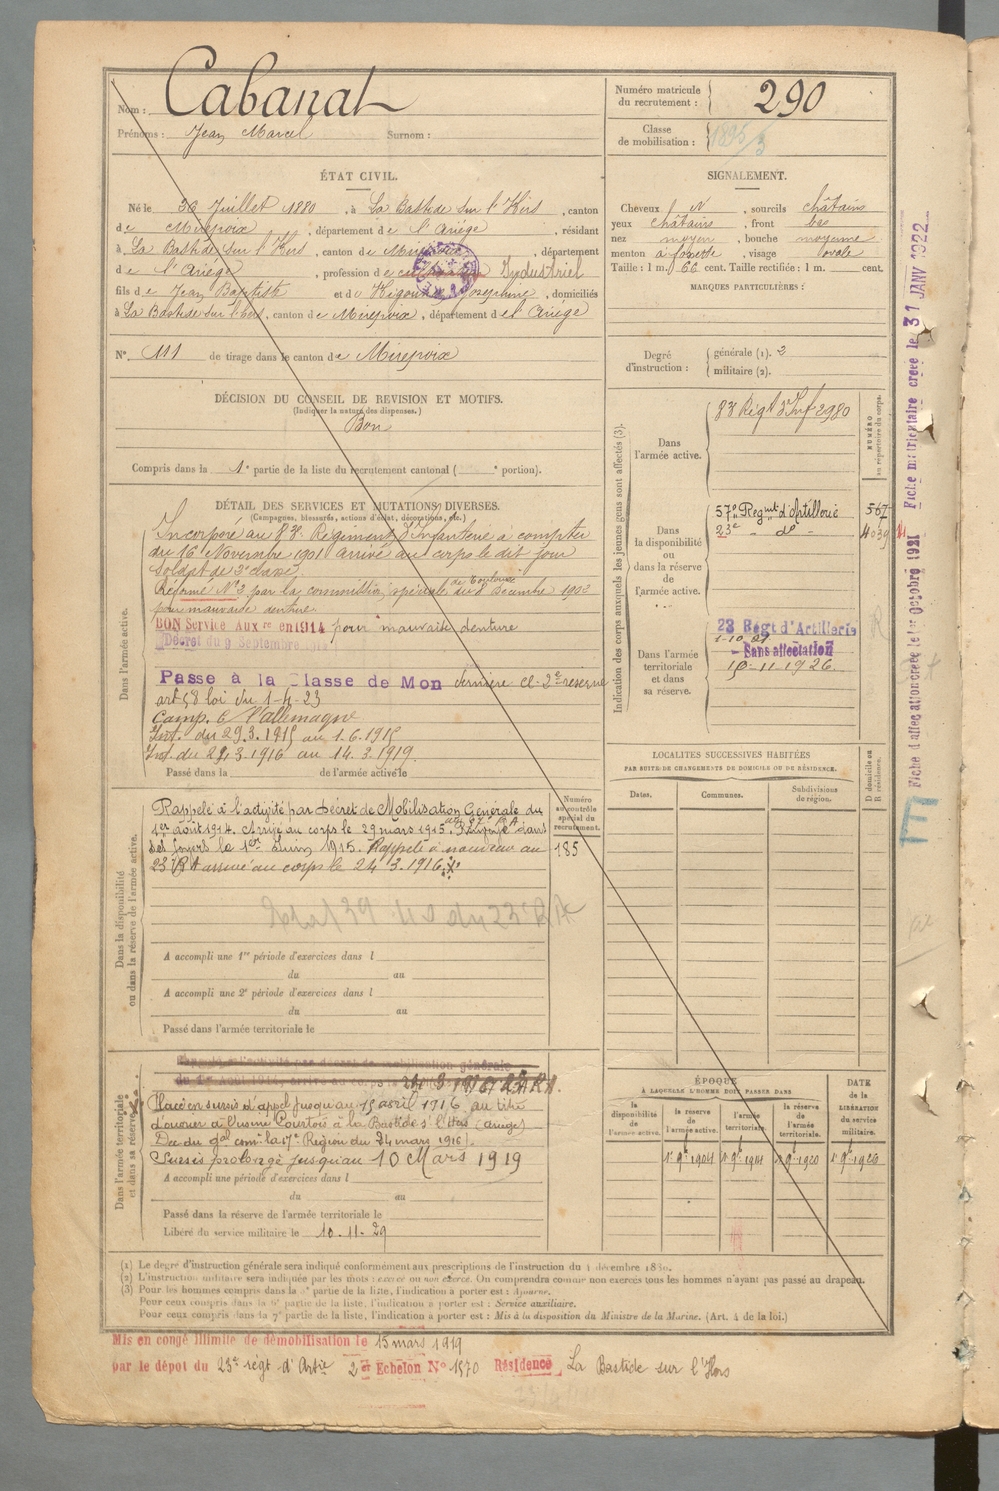 Nom : Cabanat
Prénoms : Jean Marcel Surnom :
Numéro matricule du recrutement : 290
Classe de mobilisation : 1895/3
ÉTAT CIVIL.
Né le 30 Juillet 1880, à La Bastide sur l'Hers, canton
de Mirepoix, département de l'Ariège, résidant
à La Bastide sur l'Hers, canton de Mirepoix, département
de l'Ariège, profession de cultivateur Industriel
fils de Jean Baptiste et de Josephine, domiciliés
à La Bastide sur l'hers, canton de Mirepoix, département de l'Ariège
N° 111 de tirage dans le canton de Mirepoix
SIGNALEMENT.
Cheveux N, sourcils châtains
yeux châtains, front bas
nez moyen, bouche moyenne
menton à fossette, visage ovale
Taille : 1 m. 66 cent. Taille rectifiée : 1 m. cent.
MARQUES PARTICULIÈRES :
Degré d'instruction : générale (1). 2
militaire (2).
DÉCISION DU CONSEIL DE REVISION ET MOTIFS.
(Indiquer la nature des dispenses.)
Bon
Compris dans la 1e partie de la liste du recrutement cantonal ( e portion).
DÉTAIL DES SERVICES ET MUTATIONS DIVERSES.
(Campagnes, blessures, actions d'éclat, décorations, etc.)
Dans l'armée active.
Incorporé au 83e Régiment d'Infanterie à compter
du 16 Novembre 1901 arrivé au corps le dit jour
Soldat de 2e classe
Réformé N° 2 par la commission spéciale de Toulouse du 8 Décembre 1902
pour mauvaise denture
BON Service Aux re en 1914 pour mauvaise denture
Décret du 9 Septembre 1914
Passe à la Classe de Mon dernière cl. 2e reserve
art 58 loi du 1-4-23
Camp. c/ l'allemagne
Int. du 29.3.1915 au 1.6.1915
Int. du 24.3.1916 au 14.3.1919
Passé dans la de l'armée active le
Dans la disponibilité ou dans la réserve de l'armée active.
Rappelé à l'activité par Décret de Mobilisation Générale du
1er août 1914. Arrivé au corps le 29 mars 1915. Renvoyé dans
ses foyers le 1er Juin 1915. Rappelé à nouveau au
23e RA arrivé au corps le 24.3.1916.
Numéro au contrôle spécial du recrutement.
185
A accompli une 1re période d'exercices dans l
du au
A accompli une 2e période d'exercices dans l
du au
Passé dans l'armée territoriale le
Dans l'armée territoriale et dans sa réserve.
Rappelé à l'activité par décret de mobilisation générale
du 1er Août 1914, arrivé au corps le
Placé en sursis d'appel jusqu'au 15 avril 1916 au titre
d'ouvrier à l'usine Courtois à la Bastide s' l'Hers (ariège)
Déc. du gal comt la 17e Région du 24 mars 1916.
Sursis prolongé jusqu'au 10 Mars 1919
A accompli une période d'exercices dans l
du au
Passé dans la réserve de l'armée territoriale le
Libéré du service militaire le 10.11.29
Indication des corps auxquels les jeunes gens sont affectés (3).
NUMÉRO au répertoire du corps.
Dans l'armée active. 83 Régt d'Inf 2980
Dans la disponibilité ou dans la réserve de l'armée active.
57e Regimt d'Artillerie 567
23e - do - 4039
Dans l'armée territoriale et dans sa réserve.
23 Régt d'Artillerie
1-10-21
Sans affectation
15-11-1926
LOCALITES SUCCESSIVES HABITÉES
PAR SUITE DE CHANGEMENTS DE DOMICILE OU DE RÉSIDENCE.
Dates. Communes. Subdivisions de région. D domicile ou R résidence.
ÉPOQUE
À LAQUELLE L'HOMME DOIT PASSER DANS
la disponibilité de l'armée active. la réserve de l'armée active. l'armée territoriale. la réserve de l'armée territoriale. DATE DE LA LIBÉRATION du service militaire.
(1) Le degré d'instruction générale sera indiqué conformément aux prescriptions de l'instruction du 4 décembre 1889.
(2) L'instruction militaire sera indiquée par les mots : exercé ou non exercé. On comprendra comme non exercés tous les hommes n'ayant pas passé au drapeau.
(3) Pour les hommes compris dans la 2e partie de la liste, l'indication à porter est : Ajourné.
Pour ceux compris dans la 5e partie de la liste, l'indication à porter est : Service auxiliaire.
Pour ceux compris dans la 7e partie de la liste, l'indication à porter est : Mis à la disposition du Ministre de la Marine. (Art. 4 de la loi.)
Mis en congé illimité de démobilisation le 15 mars 1919
par le dépot du 23e régt d'Artie 2er Echelon N° 1570 Résidence La Bastide sur l'Hers
Fiche d'affectation créée le 1er Octobre 1921 Fiche matriculaire créée le 31 JANV 1922